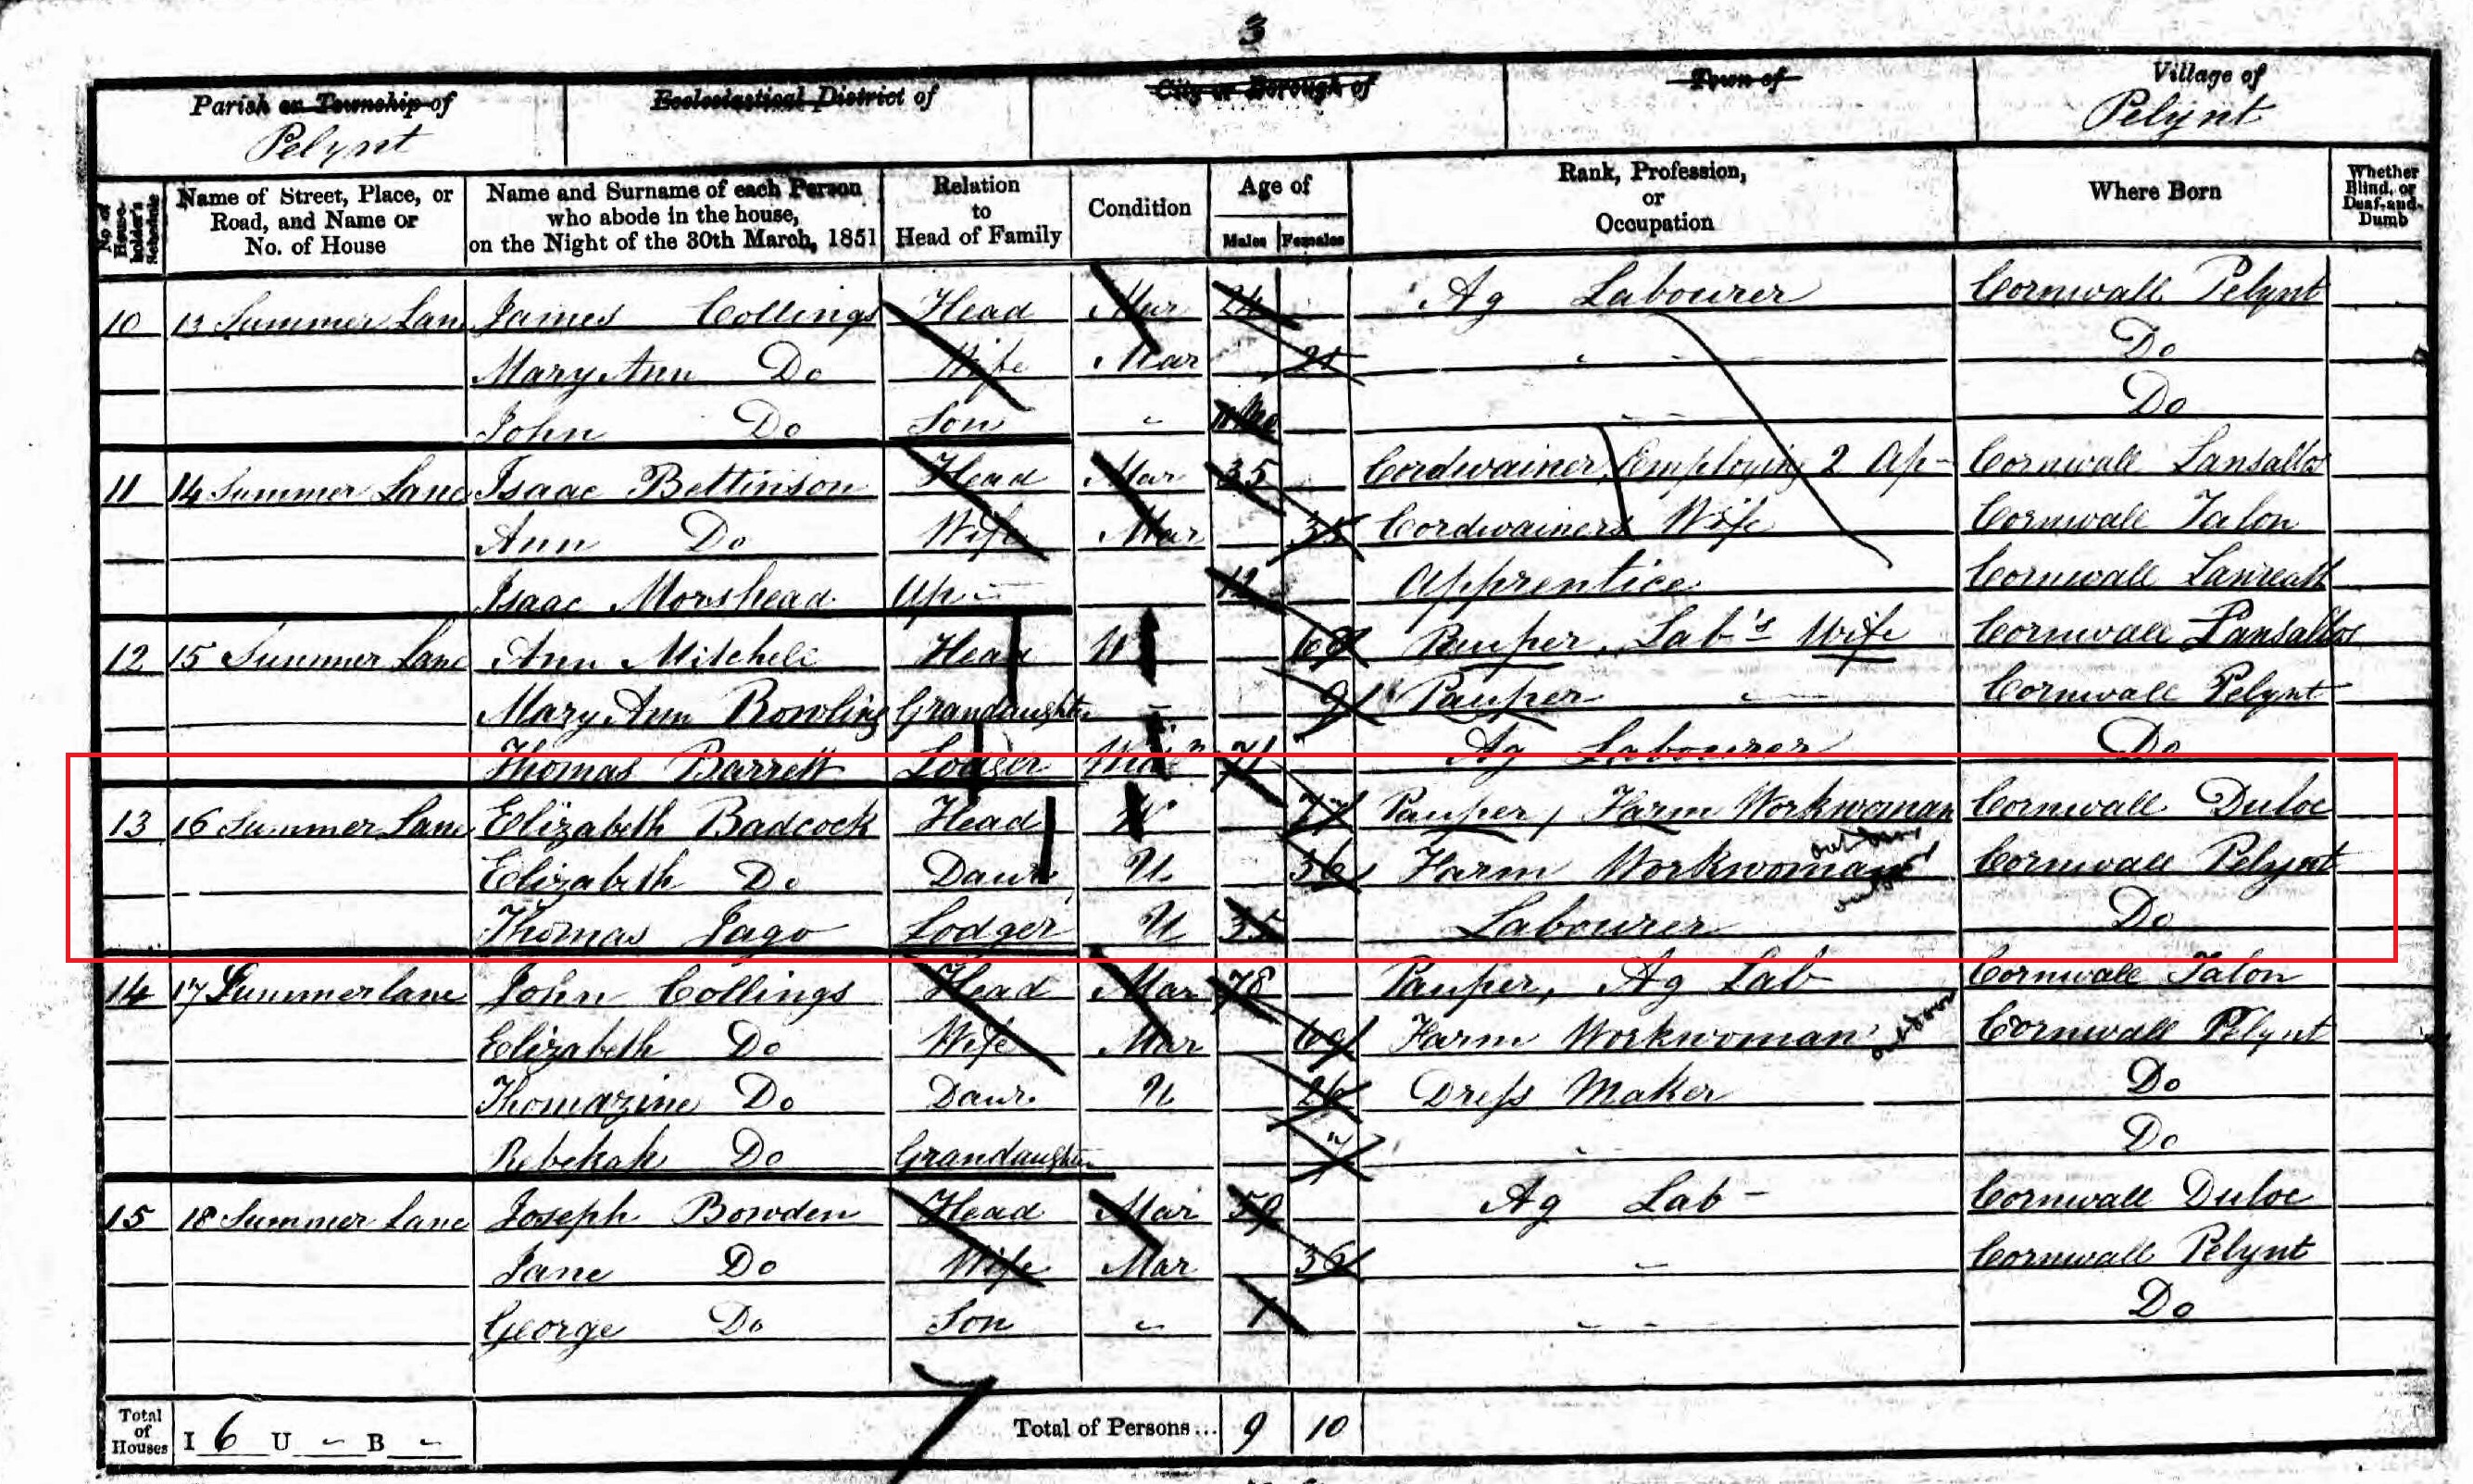 3
Parish or Township of Pelynt Ecclesiastical District of City or Borough of Town of Village of Pelynt
No. of House-holder's Schedule Name of Street, Place, or Road, and Name or No. of House Name and Surname of each Person who abode in the house, on the Night of the 30th March, 1851 Relation to Head of Family Condition Age of Males Females Rank, Profession, or Occupation Where Born Whether Blind, or Deaf-and-Dumb
10 13 Summer Lan James Collings Head Mar 24 Ag Labourer Cornwall Pelynt
Mary Ann Do Wife Mar 21 Do
John Do Son Do
11 14 Summer Lane Isaac Bettinson Head Mar 35 Cordwainer Employing 2 Ap- Cornwall Lansallos
Ann Do Wife Mar 35 Cordwainers Wife Cornwall Talon
Isaac Morshead Ap- 12 Apprentice Cornwall Lanreath
12 15 Summer Lane Ann Mitchell Head W 68 Pauper, Lab's Wife Cornwall Lansallos
Mary Ann Bowling Grandaughter 9 Pauper Cornwall Pelynt
Thomas Barrett Lodger 71 Ag Labourer Do
13 16 Summer Lane Elizabeth Badcock Head W 77 Pauper, Farm Workwoman Cornwall Duloe
out door
Elizabeth Do Daur U 36 Farm Workwoman Cornwall Pelynt
Thomas Jago Lodger U 35 Labourer Do
14 17 Summer lane John Collings Head Mar 78 Pauper, Ag Lab Cornwall Talon
Elizabeth Do Wife Mar 69 Farm Workwoman outdoor Cornwall Pelynt
Thomazine Do Daur. U 26 Dress Maker Do
Rebekah Do Grandaughter 7 Do
15 18 Summer Lane Joseph Bowden Head Mar 59 Ag Lab- Cornwall Duloe
Jane Do Wife Mar 36 Cornwall Pelynt
George Do Son 1 Do
Total of Houses I 6 U - B - Total of Persons... 9 10